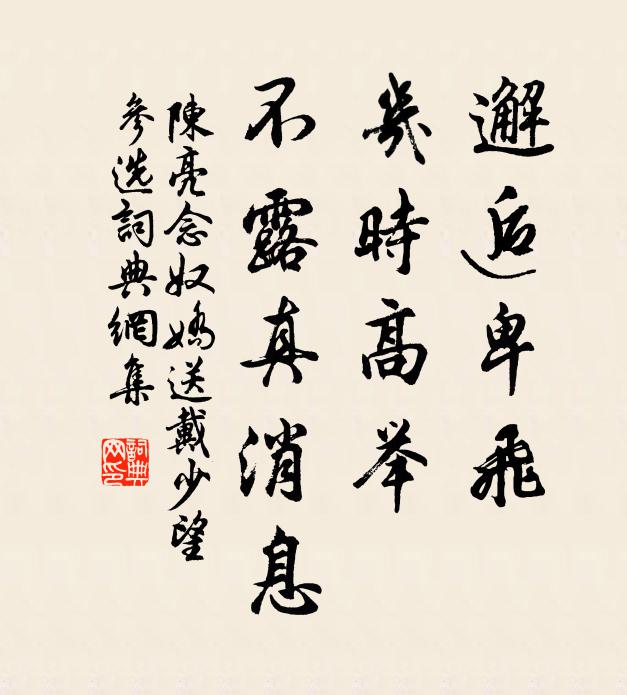 邂逅卑飛
幾時高举
不露真消息
陳亮念奴嬌送戴少望
參选詞典網集
詞典网印